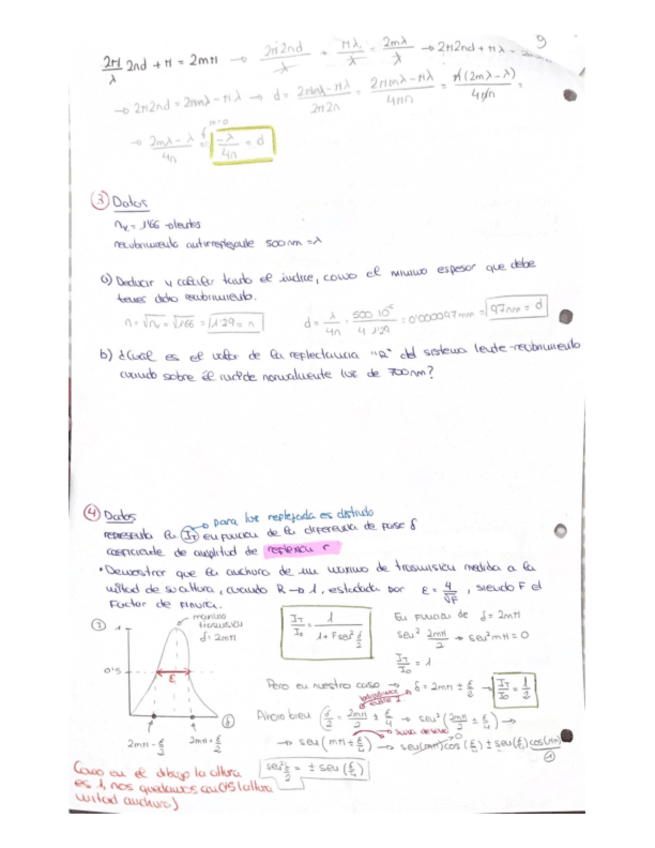 9
2π/λ 2nd + π = 2mπ → 2π2nd/λ + πλ/λ = 2mλ/λ → 2π2nd + πλ =
→ 2π2nd = 2πmλ − πλ → d = 2πmλ − πλ / 2π2n = 2πmλ − πλ / 4πn = π(2mλ − λ) / 4πn =
→ 2mλ − λ / 4n = m=0 −λ/4n = d
③ Datos
nv = 1'66 →lentes
recubrimiento antirreflejante 500nm = λ
a) Deducir y calcular tanto el índice, como el mínimo espesor que debe
tener dicho recubrimiento.
n = √nv = √1'66 = 1'29 = n d = λ/4n = 500·10⁻⁶ / 4·1'29 = 0'000097mm = 97nm = d
b) ¿Cuál es el valor de la reflectancia "R" del sistema lente-recubrimiento
cuando sobre él incide normalmente luz de 700nm?
④ Datos
→ para luz reflejada es distinto
representa la IT en función de la diferencia de fase δ
coeficiente de amplitud de reflexión r
• Demostrar que la anchura de un máximo de trasmisión medida a la
mitad de su altura, cuando R → 1, está dada por ε = 4/√F, siendo F el
Factor de Finura.
máximo
trasmisión
δ = 2mπ
1
0'5
ε
2mπ − ε/2
2mπ + ε/2
IT/I0 = 1 / 1 + F sen² δ/2
En función de δ = 2mπ
sen² 2mπ/2 → sen² mπ = 0
IT/I0 = 1
Pero en nuestro caso → δ = 2mπ ± ε/2 → IT/I0 = 1/2
Ahora bien δ/2 = 2mπ/2 ± ε/4 → sen²(2mπ/2 ± ε/4) →
→ sen(mπ + ε/4) → sen(mπ)cos(ε/4) ± sen(ε/4)cos(mπ)
0
①
sen² δ/2 = ± sen(ε/4)
Como en el dibujo la altura
es 1, nos quedamos con 0'5 (altura
mitad anchura)